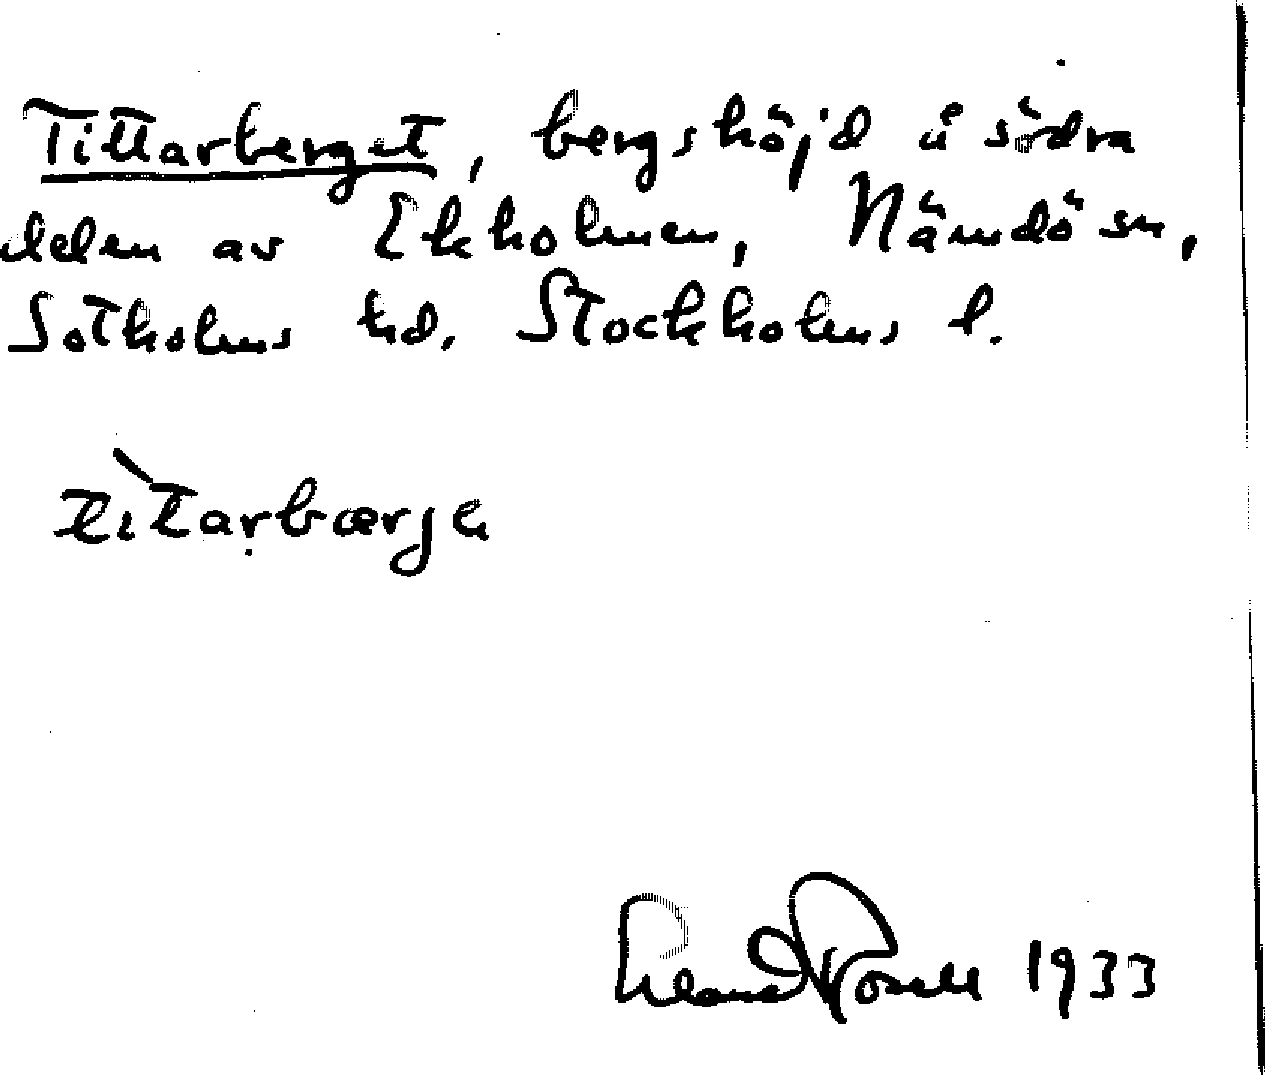 Tittarberget, bergshöjd å södra
delen av Ekholmen, Nämdö sn,
Sotholms hd. Stockholms l.
tìtarbærje
1933